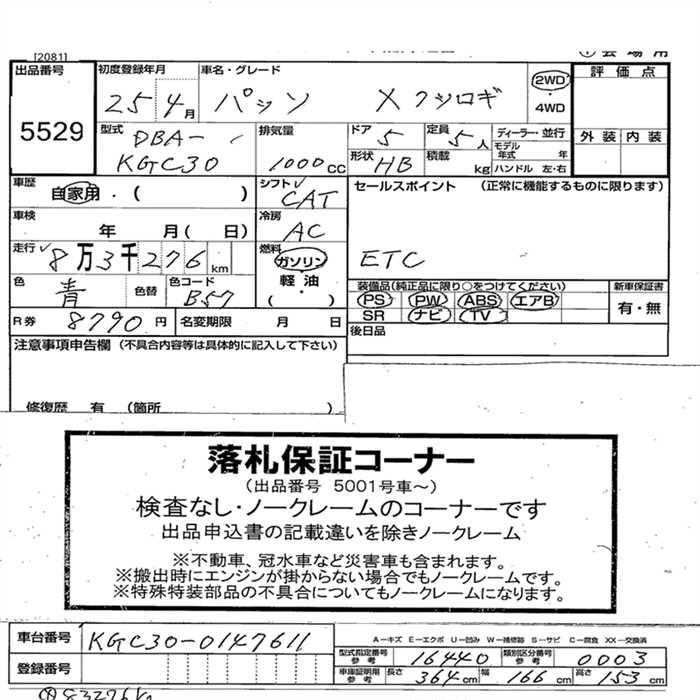 [2081]
出品番号 初度登録年月 車名・グレード 評価点
5529 25年4月 パッソ X クツロギ 2WD ・ 4WD 外装 内装
型式 DBA-KGC30 排気量 1000cc ドア 5 定員 5人 ディーラー・並行
形状 HB 積載 kg モデル年式 年 ハンドル 左・右
車歴 自家用・( ) シフト CAT セールスポイント (正常に機能するものに限ります)
車検 年 月( 日) 冷房 AC
走行 8万3千276km 燃料 ガソリン 軽油 ・( ) ETC
色 青 色替 色コード B57 装備品(純正品に限り○をつけてください) 新車保証書
PS PW ABS エアB 有・無
SR ナビ TV
R券 8790円 名変期限 月 日 後日品
注意事項申告欄 (不具合内容等は具体的に記入して下さい)
修復歴 有 (箇所 )
落札保証コーナー
(出品番号 5001号車～)
検査なし・ノークレームのコーナーです
出品申込書の記載違いを除きノークレーム
※不動車、冠水車など災害車も含まれます。
※搬出時にエンジンが掛からない場合でもノークレームです。
※特殊特装部品の不具合についてもノークレームになります。
A－キズ E－エクボ U－凹み W－補修跡 S－サビ C－腐食 XX－交換済
車台番号 KGC30-0147611 型式指定番号 参考 16440 類別区分番号 参考 0003
登録番号 車庫証明用 参考 長さ 364cm 幅 166cm 高さ 153cm